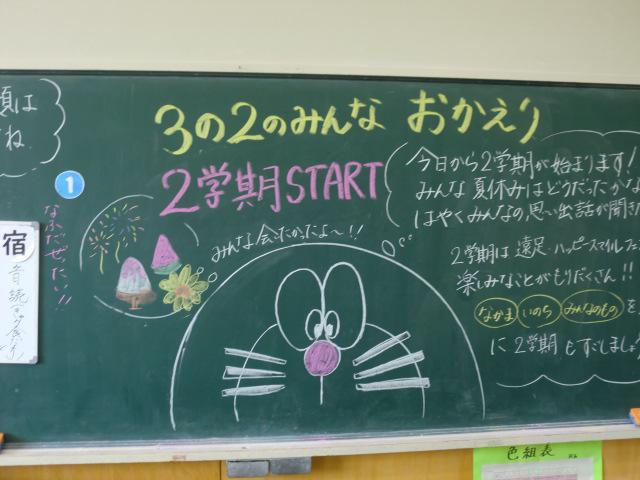 3の2のみんな おかえり
2学期START
1
なふだぜったい!!
みんな会いたかったよ〜!!
今日から2学期が始まります!
みんな夏休みはどうだったかな
はやくみんなの思い出話が聞き
2学期は遠足・ハッピースマイルフェ
楽しみなことがもりだくさん!!
なかま いのち みんなのもの を
に2学期もすごしましょ
宿
音読
色組表